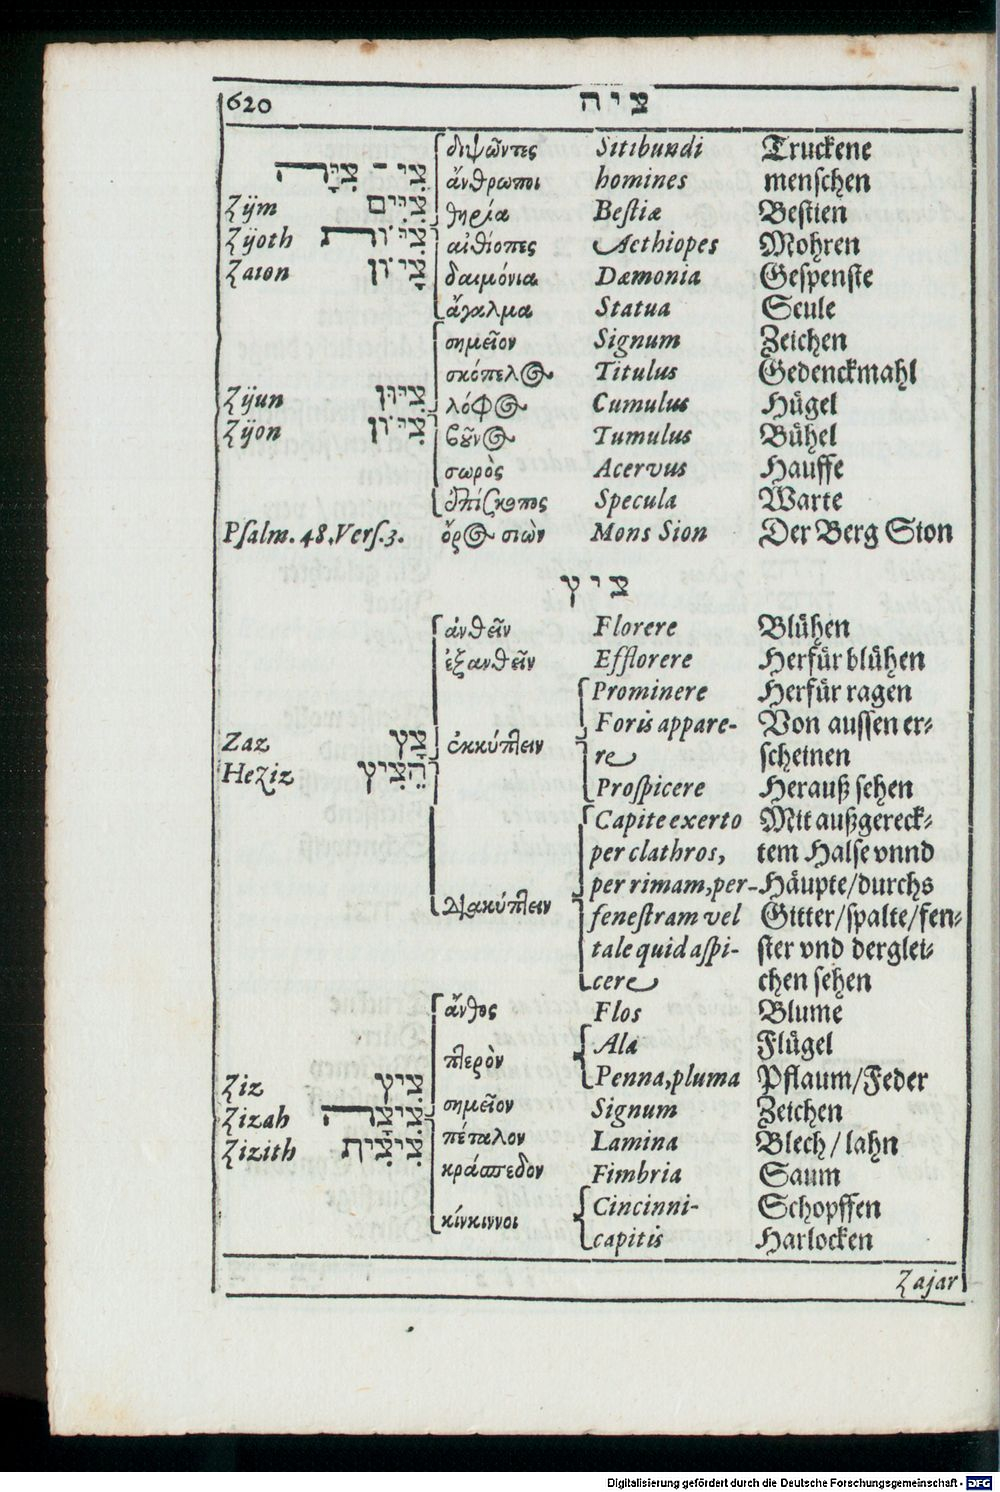 620 ציה
διψῶντες Sitibundi Truckene
צִי־ צִיָּה ἄνθρωποι homines menschen
Zÿm צִיִּים θηρία Bestiæ Bestien
Zÿoth צִיּוֹת αἰθίοπες Aethiopes Mohren
Zaion צָיוֹן δαιμόνια Dæmonia Gespenste
ἄγαλμα Statua Seule
σημεῖον Signum Zeichen
σκόπελος Titulus Gedenckmahl
Zÿun צִיּוּן λόφος Cumulus Hügel
Zÿon צִיּוֹן βοῦνος Tumulus Bühel
σωρὸς Acervus Hauffe
ἐπίσκοπος Specula Warte
Psalm. 48. Vers. 3. ὄρος σιὼν Mons Sion Der Berg Sion
ציץ
ἀνθεῖν Florere Blühen
ἐξανθεῖν Efflorere Herfür blühen
Prominere Herfür ragen
Foris appare- Von aussen er-
Zaz צָץ ἐκκύπτειν re scheinen
Heziz הֵצִיץ Prospicere Herauß sehen
Capite exerto Mit außgereck-
per clathros, tem Halse vnnd
per rimam, per- Häupte/durchs
Διακύπτειν fenestram vel Gitter/spalte/fen-
tale quid aspi- ster vnd derglei-
cere chen sehen
ἄνθος Flos Blume
πτερὸν Ala Flügel
Ziz צִיץ Penna, pluma Pflaum/Feder
Zizah צִיצָה σημεῖον Signum Zeichen
Zizith צִיצִית πέταλον Lamina Blech/lahn
κράσπεδον Fimbria Saum
κίνκιννοι Cincinni- Schopffen
capitis Harlocken
Zajar
Digitalisierung gefördert durch die Deutsche Forschungsgemeinschaft - DFG